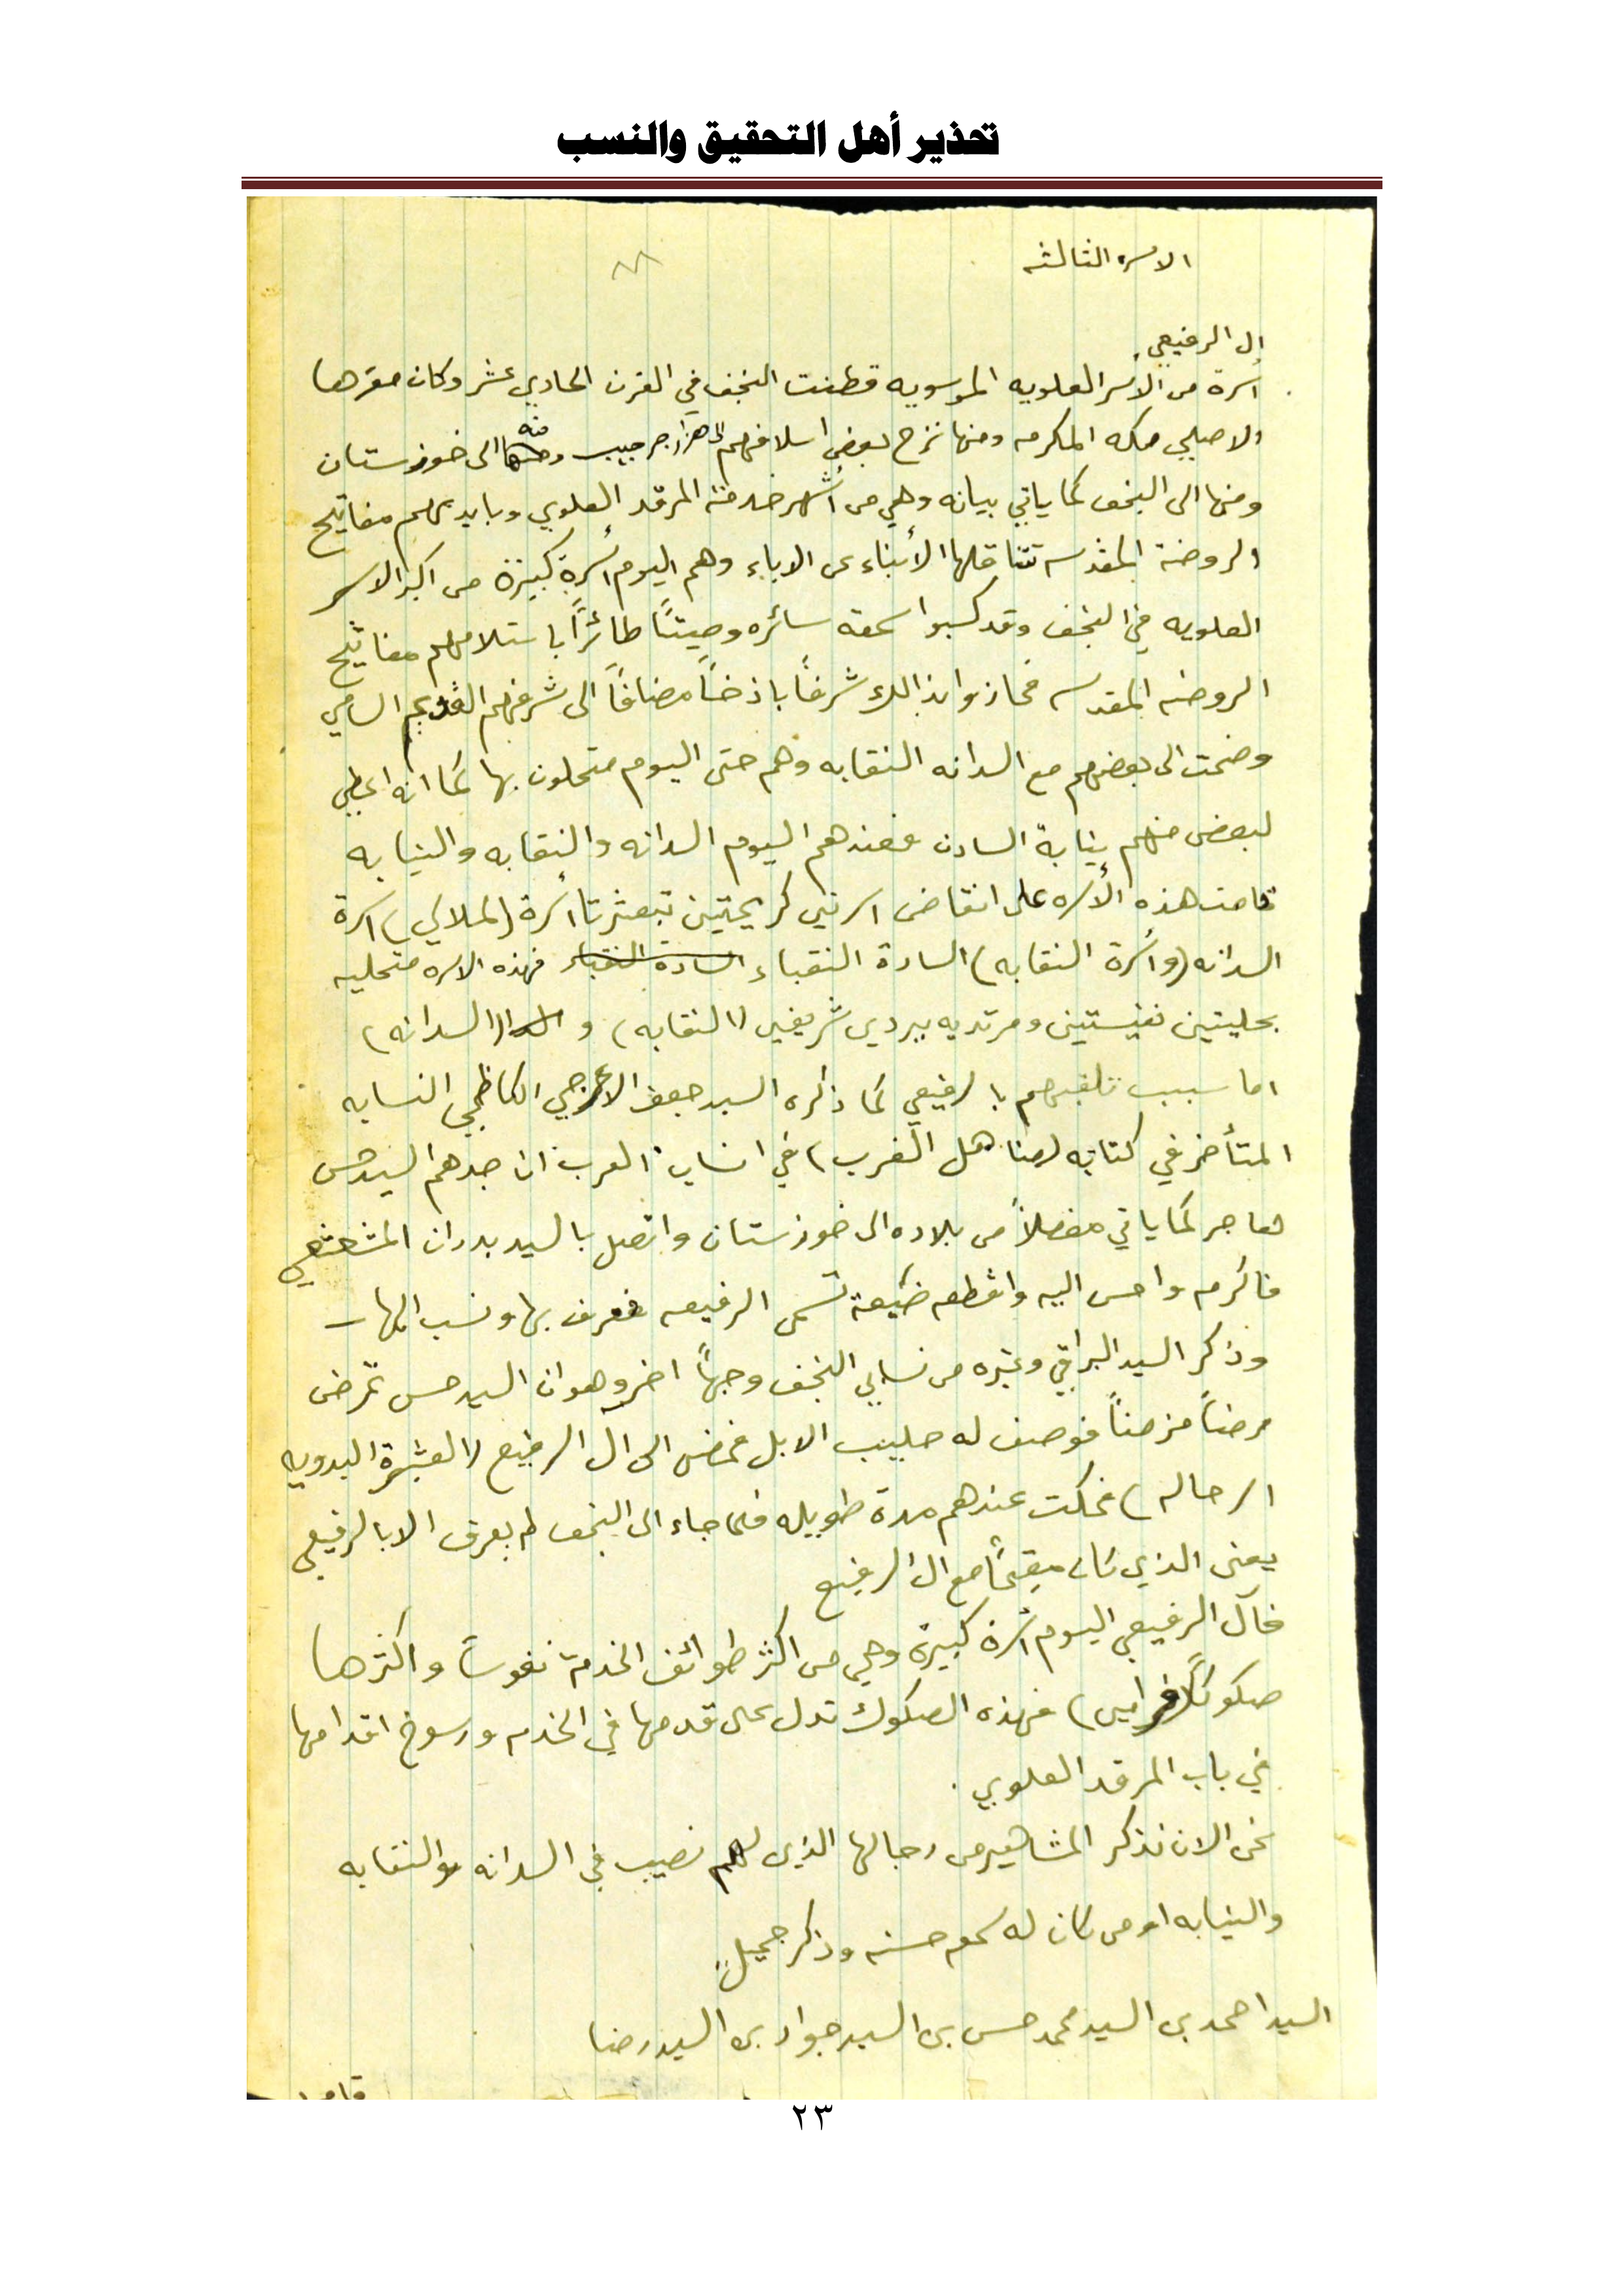 تحذير أهل التحقيق والنسب
الاسره الثالثه
ال الرفيعي
أسرة من الأسر العلويه الموسويه قطنت النجف في القرن الحادي عشر وكان مقرها
الاصلي مكه المكرمه ومنها نزح بعض اسلافهم الى هزار جريب ومنه الى خوزستان
ومنها الى النجف كما ياتي بيانه وهي من أشهر خدمة المرقد العلوي وبايديهم مفاتيح
الروضة المقدسه تتناقلها الأبناء عن الاباء وهم اليوم أسرة كبيرة من اكبر الاسر
العلويه في النجف وقد كسبوا سمعه سائره وصيتاً طائراً باستلامهم مفاتيح
الروضه المقدسه فحازوا بذالك شرفاً باذخاً مضافاً الى شرفهم القديم السامي
وضمت الى بعضهم مع السدانه النقابه وهم حتى اليوم متحلون بها كما انه اعطي
لبعض منهم نيابة السادن فعندهم اليوم السدانه والنقابه والنيابه
قامت هذه الأسره على انقاض اسرتين كريمتين تبعثرتا أسرة (الملالي) اسرة
السدانه (وأسرة النقابه) السادة النقباء السادة النقباء فهذه الاسره متحليه
بحليتين نفيستين ومرتديه ببردين شريفين (النقابه) و (السدانه)
اما سبب تلقبهم بالرفيعي كما ذكره السيد جعفر الاعرجي الكاظمي النسابه
المتأخر في كتابه (مناهل الضرب) في انساب العرب ان جدهم السيد حسن
هاجر كما ياتي مفصلاً من بلاده الى خوزستان واتصل بالسيد بدران المشعشعي
فاكرمه واحسن اليه واقطعه ضيعة تسمى الرفيعه فعرف بها ونسب اليها -
وذكر السيد البراقي وغيره من نسابي النجف وجهاً اخر وهو ان السيد حسن تمرض
مرضاً مزمناً فوصف له حليب الابل فمضى الى ال الرفيع (العشيرة البدويه
الرحاله) فمكث عندهم مدة طويله فلما جاء الى النجف لم يعرف الا بالرفيعي
يعني الذي كان مقيماً مع ال الرفيع
فآل الرفيعي اليوم أسرة كبيرة وهي من اكثر طوائف الخدمة نفوساً واكثرها
صكوكاً (فرامين) فهذه الصكوك تدل على قدمها في الخدمه ورسوخ اقدامها
في باب المرقد العلوي .
نحن الان نذكر المشاهير من رجالها الذين لهم نصيب في السدانه والنقابه
والنيابه او من كان له سمعه حسنه وذكر جميل
السيد احمد بن السيد محمد حسن بن السيد جواد بن السيد رضا
٢٣